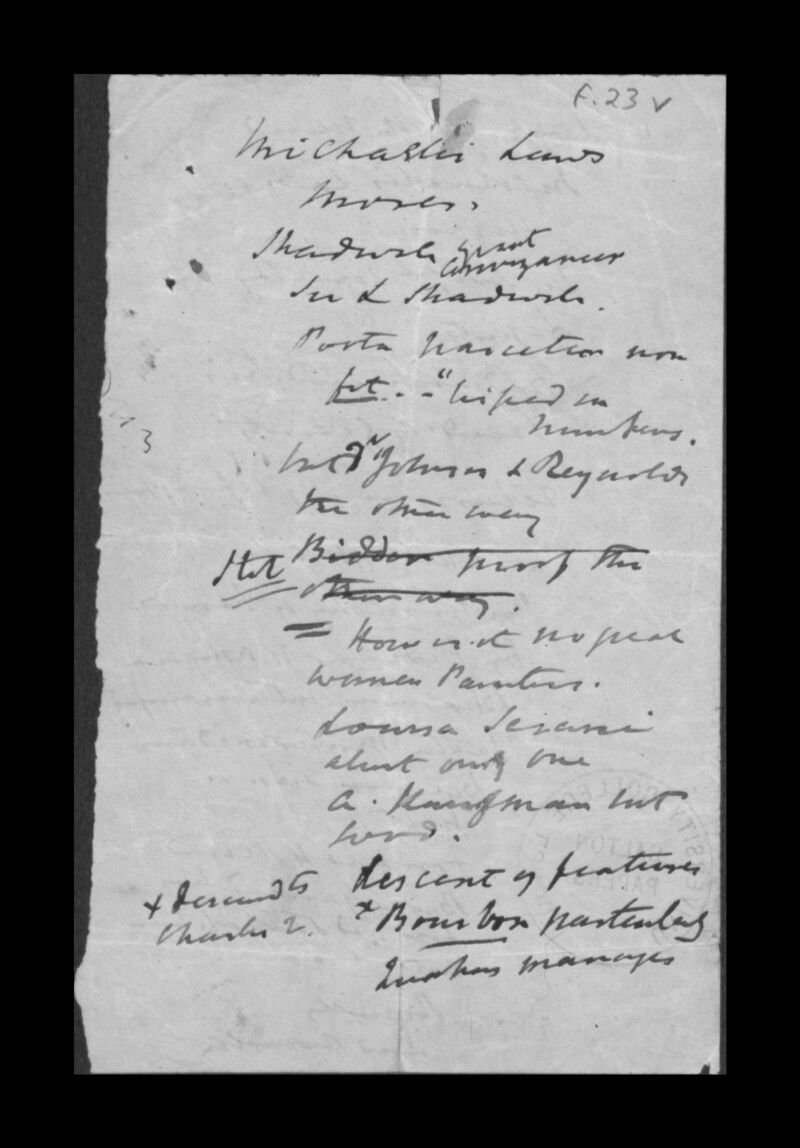 F. 23 v
Michaelis Laws
Moses.
Shadwell great
conveyancer
Sir L Shadwell.
Poeta nascitur non
fit. - "lisped in
numbers.
but Dr Johnson & Reynolds
the other way
Stet Bidder proof the
other way.
3
= How is it no great
women Painters.
about only one
A. Kauffman but
descent of features
+ descendts
Charles 2. x Bourbon particularly
Quakers marriages
UNIVERSITY COLLEGE
GALTON
PAPERS